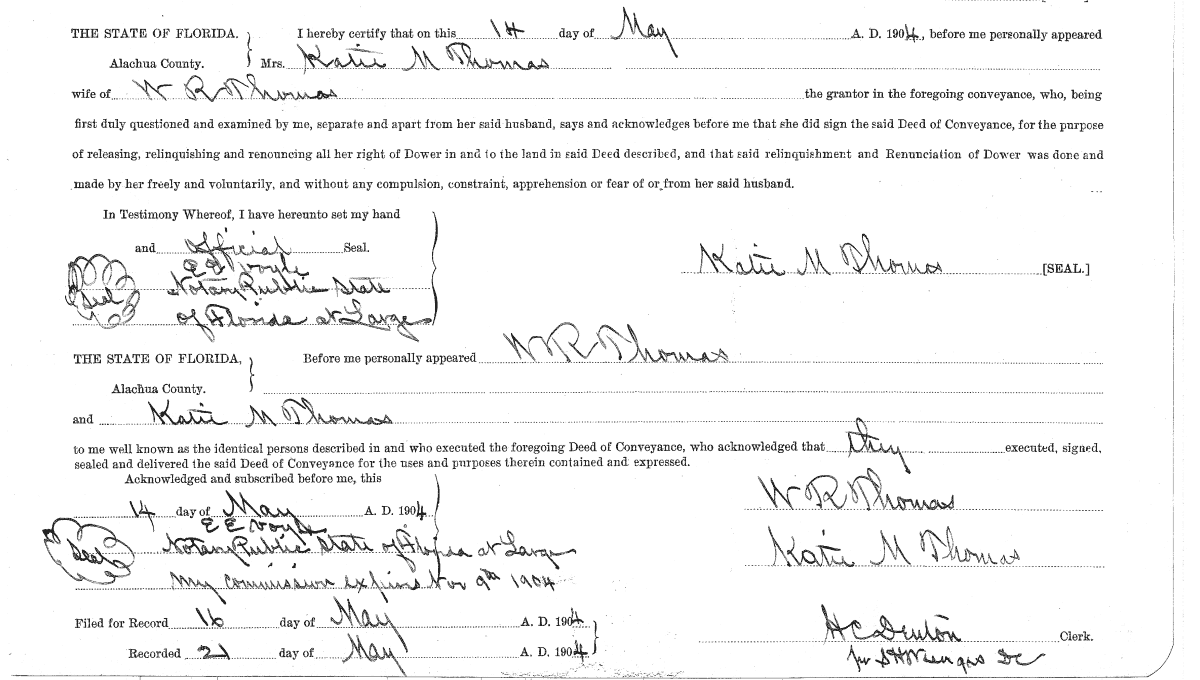 THE STATE OF FLORIDA. I hereby certify that on this 14 day of May A. D. 1904, before me personally appeared
Alachua County. Mrs. Katie M Thomas
wife of W R Thomas the grantor in the foregoing conveyance, who, being
first duly questioned and examined by me, separate and apart from her said husband, says and acknowledges before me that she did sign the said Deed of Conveyance, for the purpose
of releasing, relinquishing and renouncing all her right of Dower in and to the land in said Deed described, and that said relinquishment and Renunciation of Dower was done and
made by her freely and voluntarily, and without any compulsion, constraint, apprehension or fear of or from her said husband.
In Testimony Whereof, I have hereunto set my hand
and official Seal.
Katie M Thomas [SEAL.]
E E Voyle
Seal Notary Public State
of Florida at Large
THE STATE OF FLORIDA, Before me personally appeared W R Thomas
Alachua County.
and Katie M Thomas
to me well known as the identical persons described in and who executed the foregoing Deed of Conveyance, who acknowledged that they executed, signed,
sealed and delivered the said Deed of Conveyance for the uses and purposes therein contained and expressed.
Acknowledged and subscribed before me, this
14 day of May A. D. 1904
W R Thomas
E E Voyle
Seal Notary Public State of Florida at Large
Katie M Thomas
My commission expires Nov 9th 1904
Filed for Record 16 day of May A. D. 1904
H C Denton Clerk.
Recorded 21 day of May A. D. 1904
per S H DC